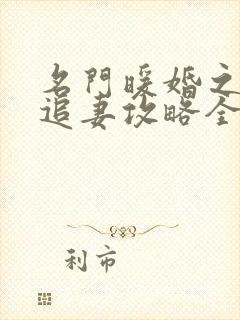 名門暖婚之
追妻攻略全
利市